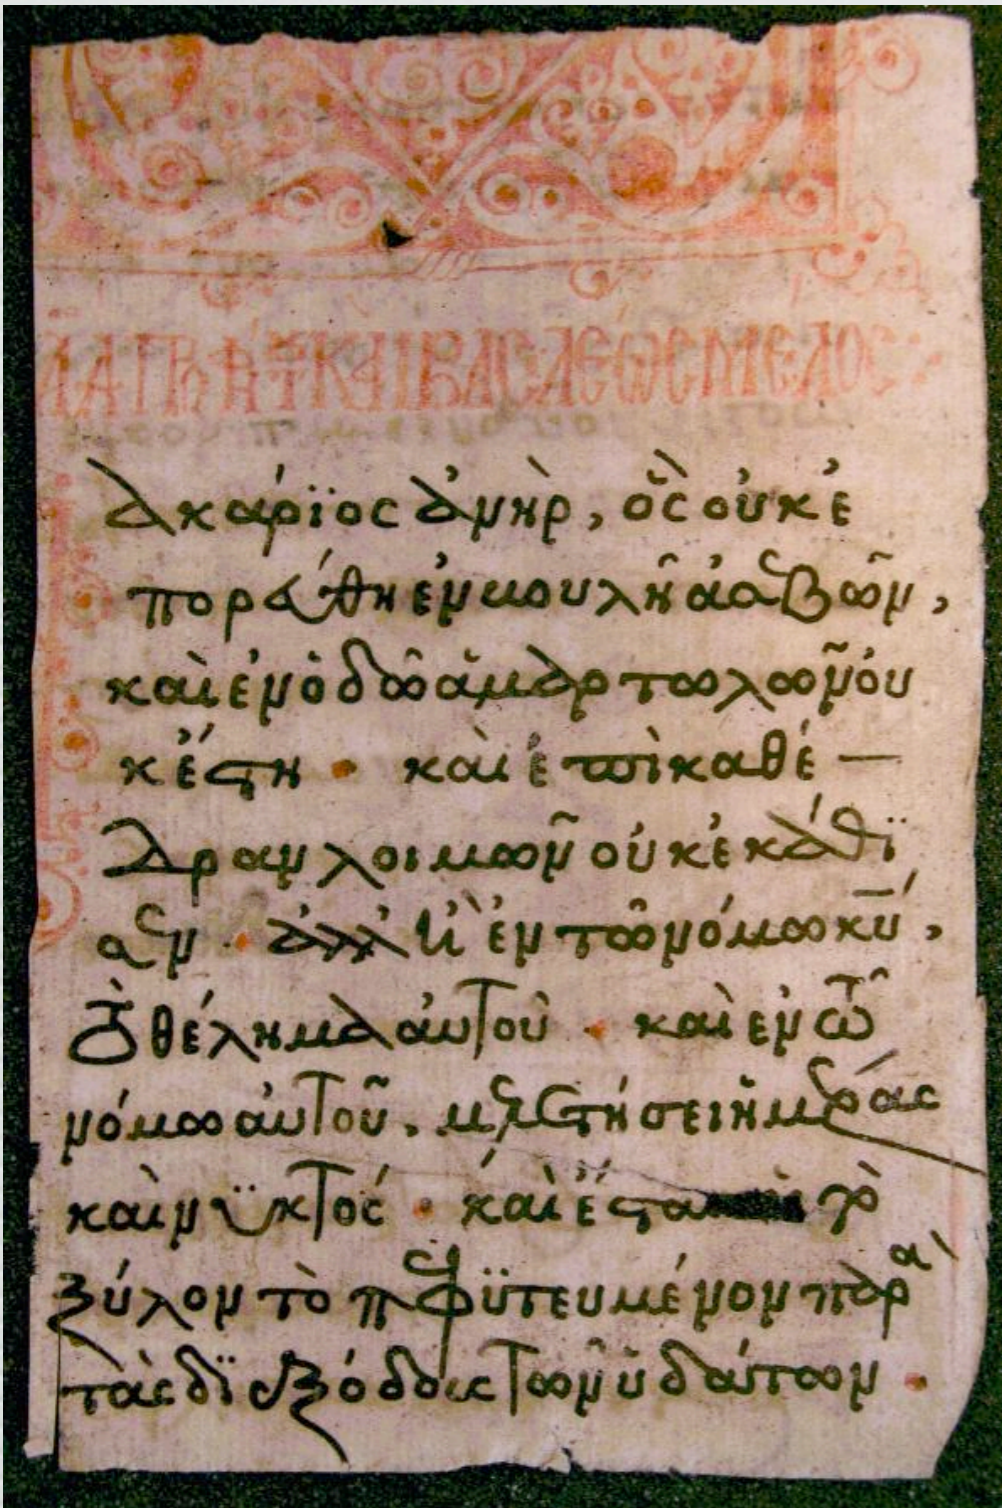 ΚΑΙ ΒΑΣΛΕΩΣ ΜΕΛΟΣ
ακάρϊος ἀνὴρ, ὃς οὐκ ἐ
πορεύθη ἐν βουλῆ ἀσεβῶν,
καὶ ἐν ὁδῶ ἁμαρτωλῶν οὐ
κ ἔστη · καὶ ἐπὶ καθέ —
δραν λοιμῶν οὐκ ἐκάθϊ
σεν · ἀλλ' ἢ ἐν τῶ νόμω κ̅υ̅,
τὸ θέλημα αὐτοῦ · καὶ ἐν τῶ
νόμω αὐτοῦ, μελετήσει ἡμέρας
καὶ νϋκτός · καὶ ἔσται τὸ
ξύλον τὸ πεφϋτευμένον παρὰ
τὰς δϊεξόδους τῶν ὑδάτων ·